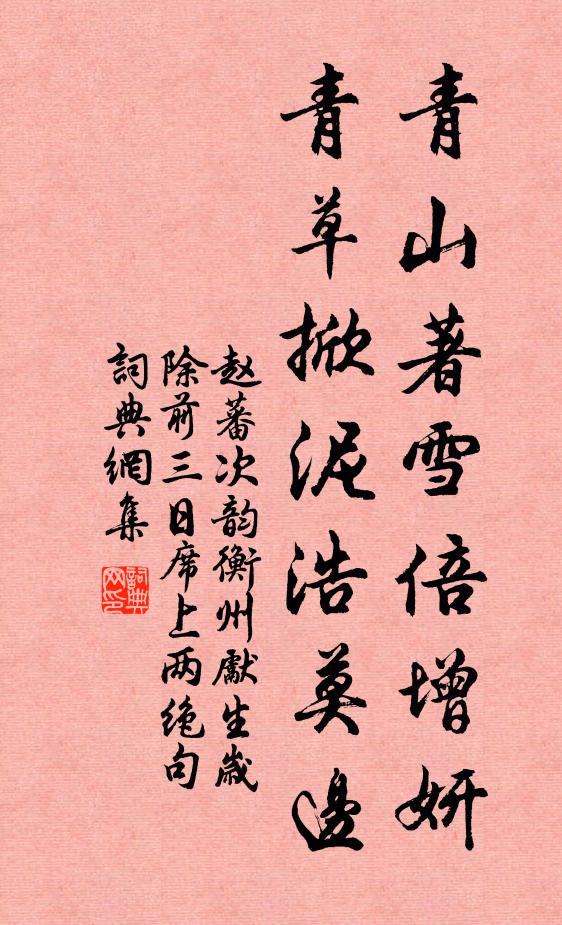 青山著雪倍增妍
青草掀泥浩莫邊
赵蕃次韵衡州獻生歲
除前三日席上两绝句
詞典網集
詞典网印